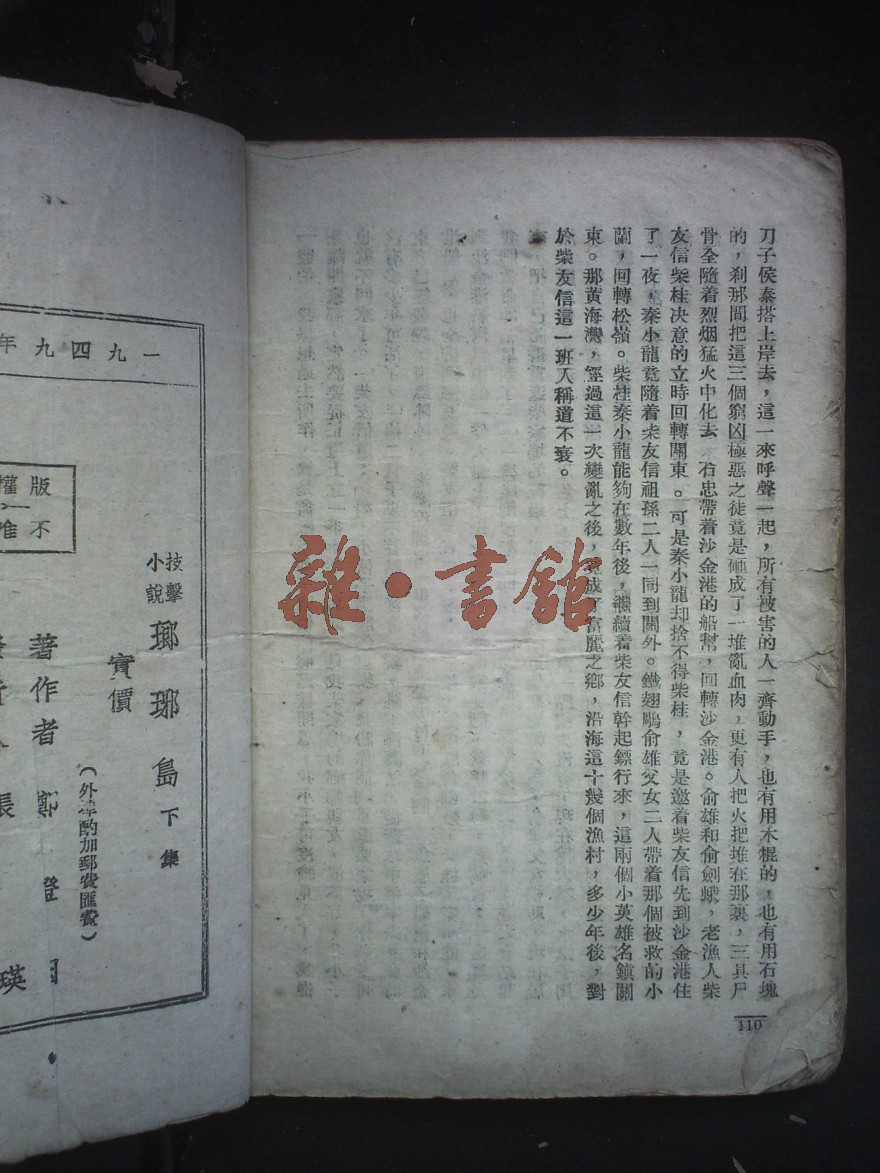 刀子侯泰搭上岸去，這一來呼聲一起，所有被害的人一齊動手，也有用木棍的，也有用石塊
的，刹那間把這三個窮凶極惡之徒竟是砸成了一堆亂血肉，更有人把火把堆在那裏，三具尸
骨全隨着烈烟猛火中化去 石忠帶着沙金港的船幫，回轉沙金港。俞雄和俞劍蛾，老漁人柴
友信柴桂决意的立時回轉關東。可是秦小龍却捨不得柴桂，竟是邀着柴友信先到沙金港住
了一夜，秦小龍竟隨着柴友信祖孫二人一同到關外。鐵翅鵰俞雄父女二人帶着那個被救的小
蘭，回轉松嶺。柴桂秦小龍能夠在數年後，繼續着柴友信幹起鏢行來，這兩個小英雄名鎮關
東。那黃海灣，經過這一次變亂之後，成了富麗之鄉，沿海這十幾個漁村，多少年後，對
於柴友信這一班人稱道不衰。
110
雜·書館
一九四九年
版權
不准
技擊
小說
瑯琊島下集
實價
（外埠酌加郵費匯費）
著作者 鄭證因
張
瑛